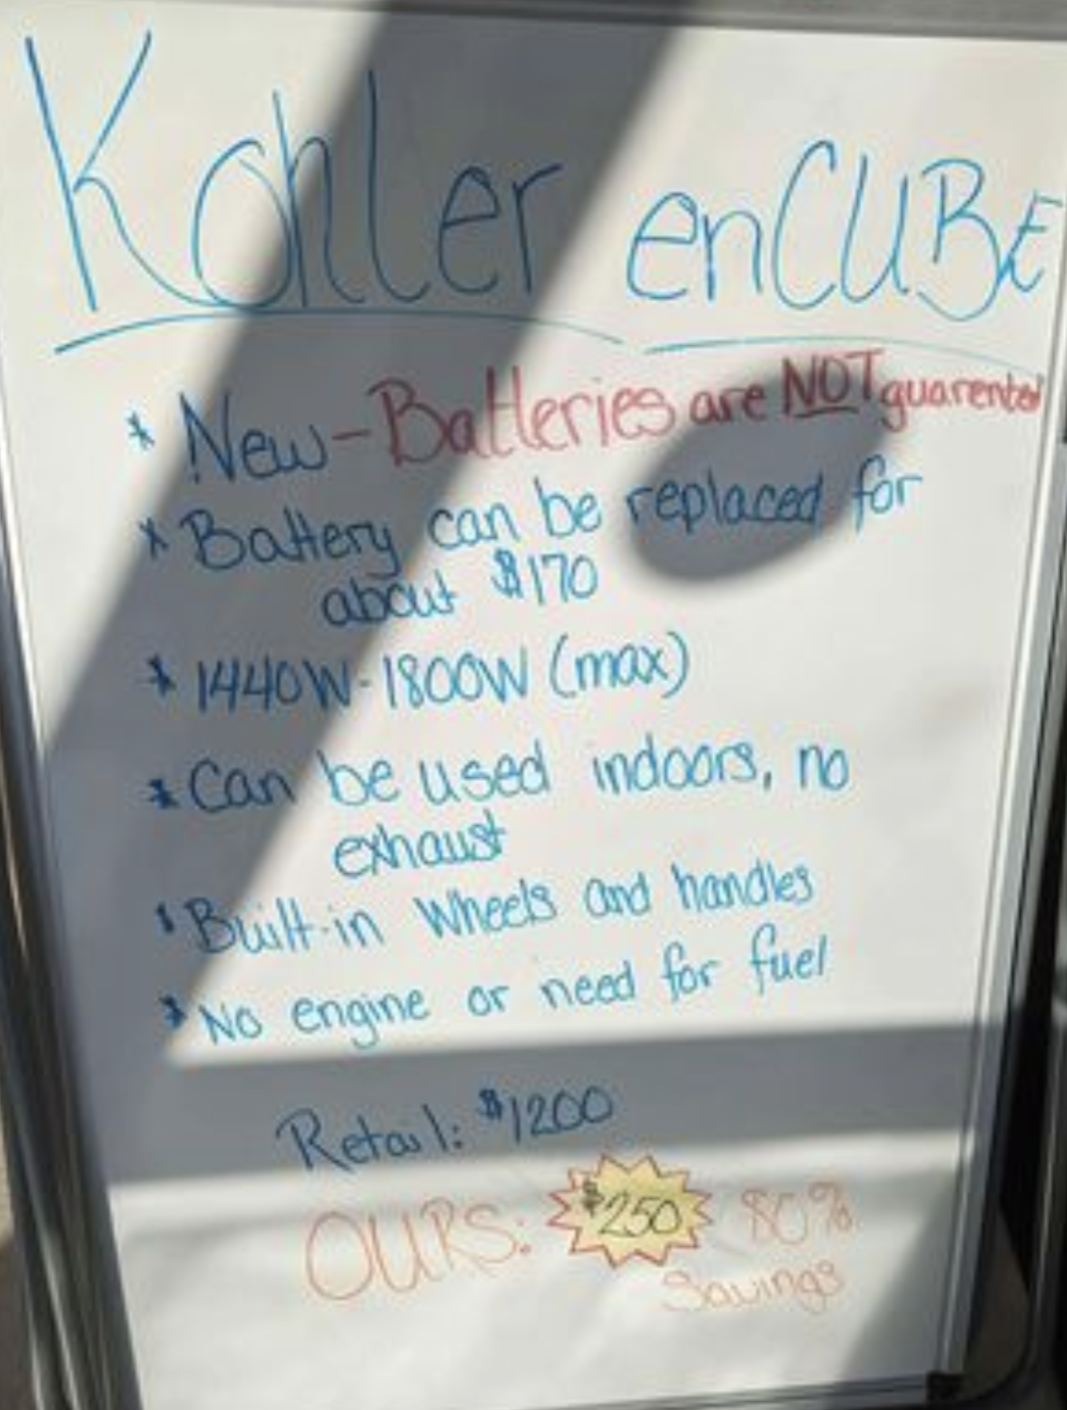 Kohler enCUBE
* New - Batteries are NOT guarenteed
* Battery can be replaced for
about $170
* 1440W - 1800W (max)
* Can be used indoors, no
exhaust
* Built-in wheels and handles
* No engine or need for fuel
Retail: $1200
OURS: $250 80%
Savings